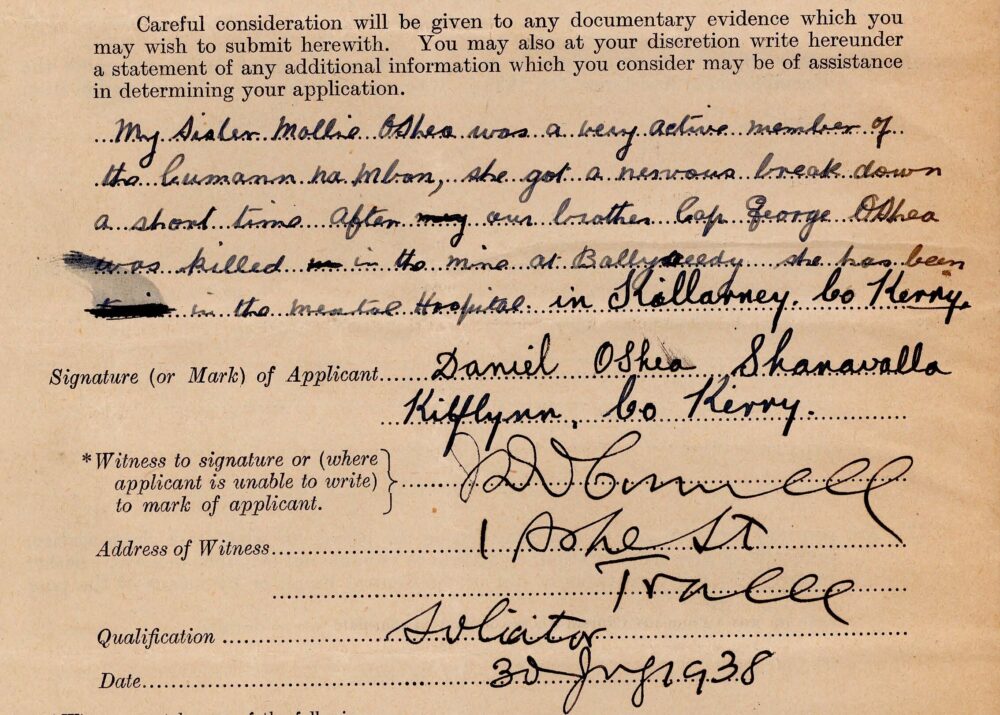 Careful consideration will be given to any documentary evidence which you
may wish to submit herewith. You may also at your discretion write hereunder
a statement of any additional information which you consider may be of assistance
in determining your application.
My Sister Mollie OShea was a very active member of
the Cumann na Mban, she got a nervous break down
a short time After our brother Cap George OShea
was killed in the mine at Ballyseedy she has been
in the Mental Hospital in Killarney. Co Kerry.
Signature (or Mark) of Applicant Daniel OShea Shanavalla
Kilflynn, Co Kerry.
*Witness to signature or (where
applicant is unable to write)
to mark of applicant.
Address of Witness 1 Ashe St
Tralee
Qualification Solicitor
Date 30 1938